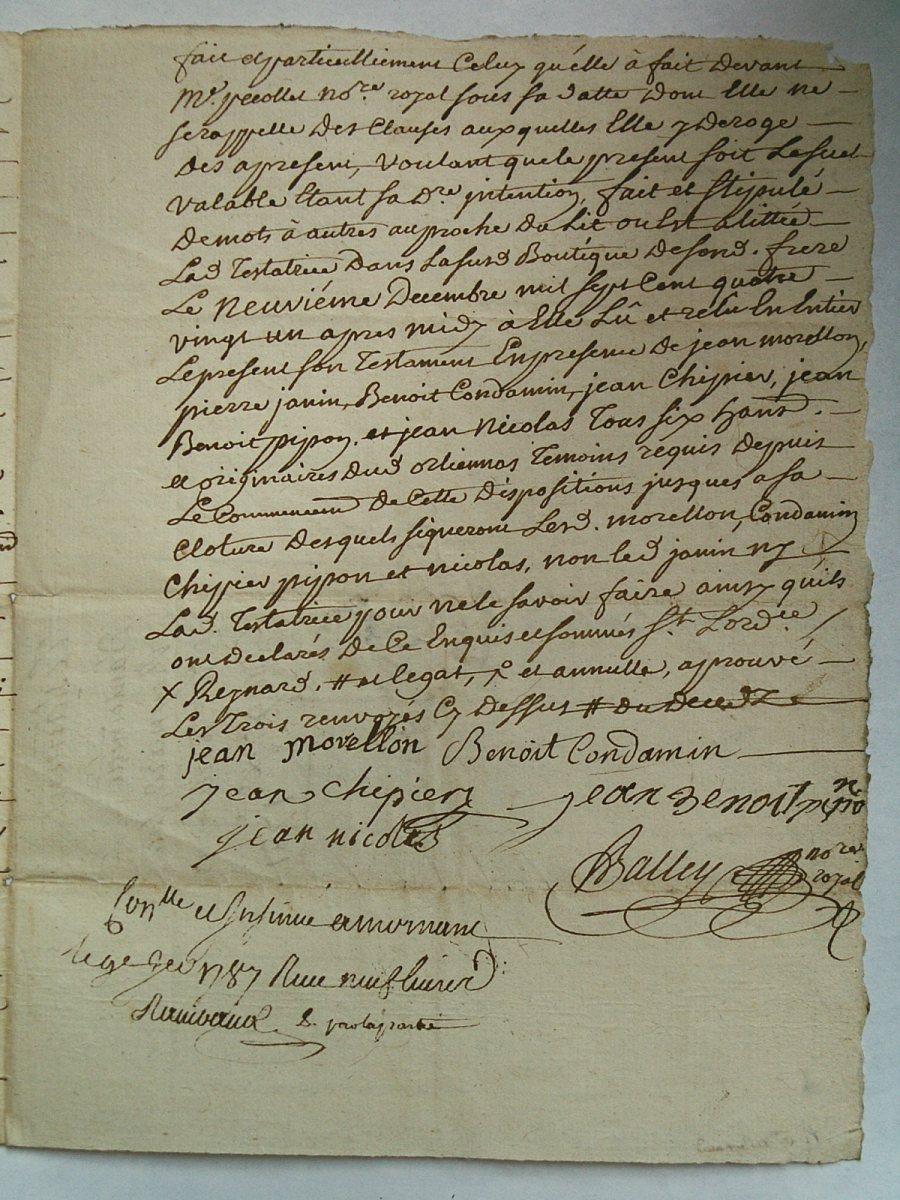 fait et particulliement Celuy qu'elle à fait Devant
Me. pecollet nore. royal sous sa Datte Dont Elle ne
se rappelle Des Clauses aux quelles Elle y Deroge
Des apresent, voulant que le present soit Le suel
valable Etant sa Dre. intention, fait et stipulé
De mots à autres au proche Du Lit ou Est alittée
Lad. Testatrice Dans La susd. Boutique De sond. frere
Le neuviéme Decembre mil sept Cent quatre
vingt un apres midy à Elle Lû et relu En Entier
Le present son Testament En presence De jean morellon,
pierre janin, Benoit Condamin, jean Chipier, jean
Benoit pipon, et jean nicolas Tous six hants.
et originaires Dud. orliennas Temoins requis Depuis
Le Commencemt De Cette Dispositions jusques a sa
Cloture Desquels signeront Lesd. morellon, Condamin
Chipier pipon et nicolas, non led janin ny
Lad. Testatrice pour ne le savoir faire ainsy quils
ont Declarés De Ce Enquis et sommés st. Lordce.
x Reynard, # et legat, et annulle, aprouvé
Les Trois renvoyés Cy Dessus # Du Deced
jean morellon Benoit Condamin
jean chipier jean Benoit pipon
jean nicolas
Balley nore. royal
Conlle et Insinué a mornant
1787 Reçu neuf livres